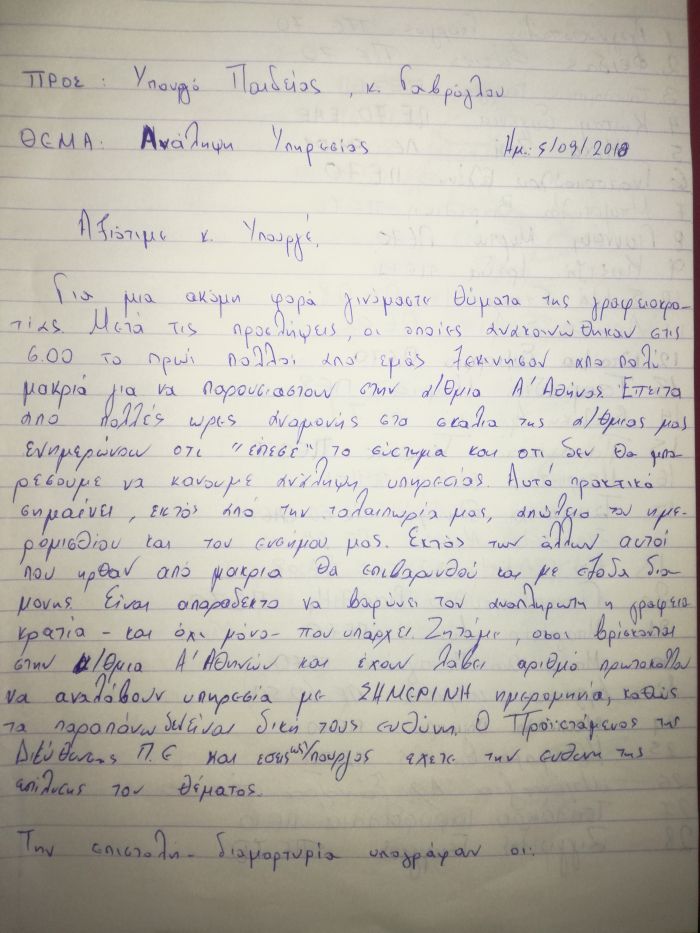 ΠΡΟΣ: Υπουργό Παιδείας, κ. Γαβρόγλου
ΘΕΜΑ: Ανάληψη Υπηρεσίας Ημ.: 5/09/2018
Αξιότιμε κ. Υπουργέ,
Για μια ακόμη φορά γινόμαστε θύματα της γραφειοκρα-
τίας. Μετά τις προσλήψεις, οι οποίες ανακοινώθηκαν στις
6.00 το πρωί πολλοί από εμάς ξεκίνησαν απο πολύ
μακριά για να παρουσιαστούν στην α/θμια Α' Αθήνας. Επειτα
απο πολλές ωρες αναμονής στα σκαλιά της α/θμιας μας
ενημερώνουν οτι "επεσε" το σύστημα και οτι δεν θα μπο
ρέσουμε να κανουμε ανάληψη υπηρεσίας. Αυτό πρακτικά
σημαίνει, εκτός από την ταλαιπωρία μας, απώλεια του ημε-
ρομισθίου και του ενσήμου μας. Εκτός των άλλων αυτοί
που ηρθαν από μακρια θα επιβαρυνθού και με έξοδα δια
μονης. Είναι απαράδεκτο να βαρύνει τον αναπληρωτη η γραφειο
κρατία - και όχι μόνο - που υπάρχει. Ζητάμε, οσοι βρίσκονται
στην α/θμια Α' Αθηνών και έχουν λάβει αριθμό πρωτοκόλλου
να αναλάβουν υπηρεσία με ΣΗΜΕΡΙΝΗ ημερομηνία, καθώς
τα παραπάνω δε είναι δική τους ευθύνη. Ο Προϊστάμενος της
Διεύθυνσης Π.Ε και εσεις ως υπουργος εχετε την ευθυνη της
επίλυσης του θέματος.
Την επιστολή - διαμαρτυρία υπογράφουν οι: